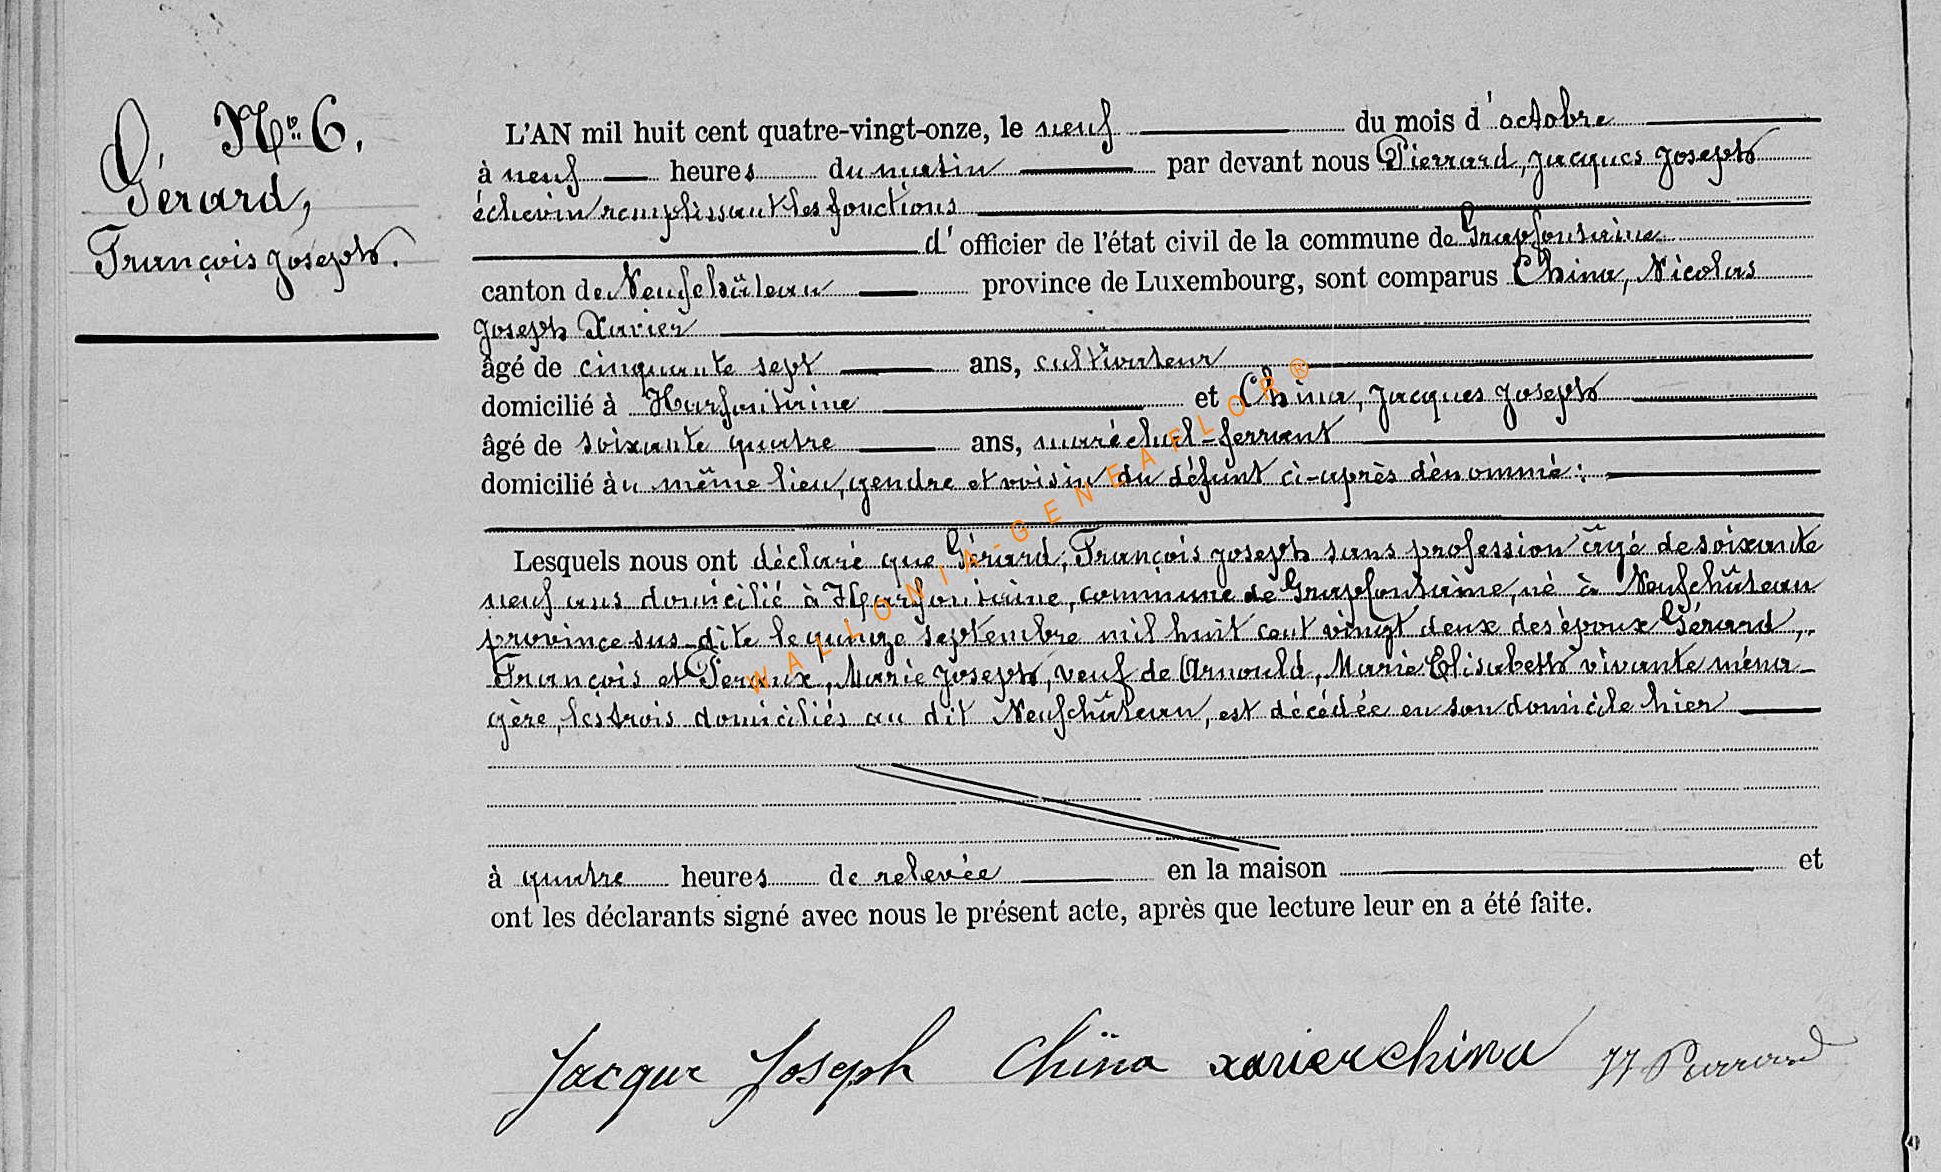 D. N.º 6.
Gérard,
François Joseph.
L'AN mil huit cent quatre-vingt-onze, le neuf du mois d'octobre
à neuf heures du matin par devant nous Pierrard, Jacques Joseph
échevin remplissant les fonctions
d'officier de l'état civil de la commune de Grapfontaine
canton de Neufchâteau province de Luxembourg, sont comparus China, Nicolas
Joseph Xavier
âgé de cinquante sept ans, cultivateur
domicilié à Harfontaine et China, Jacques Joseph
âgé de soixante quatre ans, maréchal-ferrant
domicilié au même lieu, gendre et voisin du défunt ci-après dénommé:
Lesquels nous ont déclaré que Gérard, François Joseph sans profession âgé de soixante
neuf ans domicilié à Harfontaine, commune de Grapfontaine, né à Neufchâteau
province sus-dite le quinze septembre mil huit cent vingt deux des époux Gérard,
François et Peraux, Marie Joseph, veuf de Arnould, Marie Elisabeth vivante ména-
gère, les trois domiciliés au dit Neufchâteau, est décédée en son domicile hier
à quatre heures de relevée en la maison et
ont les déclarants signé avec nous le présent acte, après que lecture leur en a été faite.
Jacque Joseph Chïna xavier china JJ Pierrard
WALLONIA-GENEAFLOR®